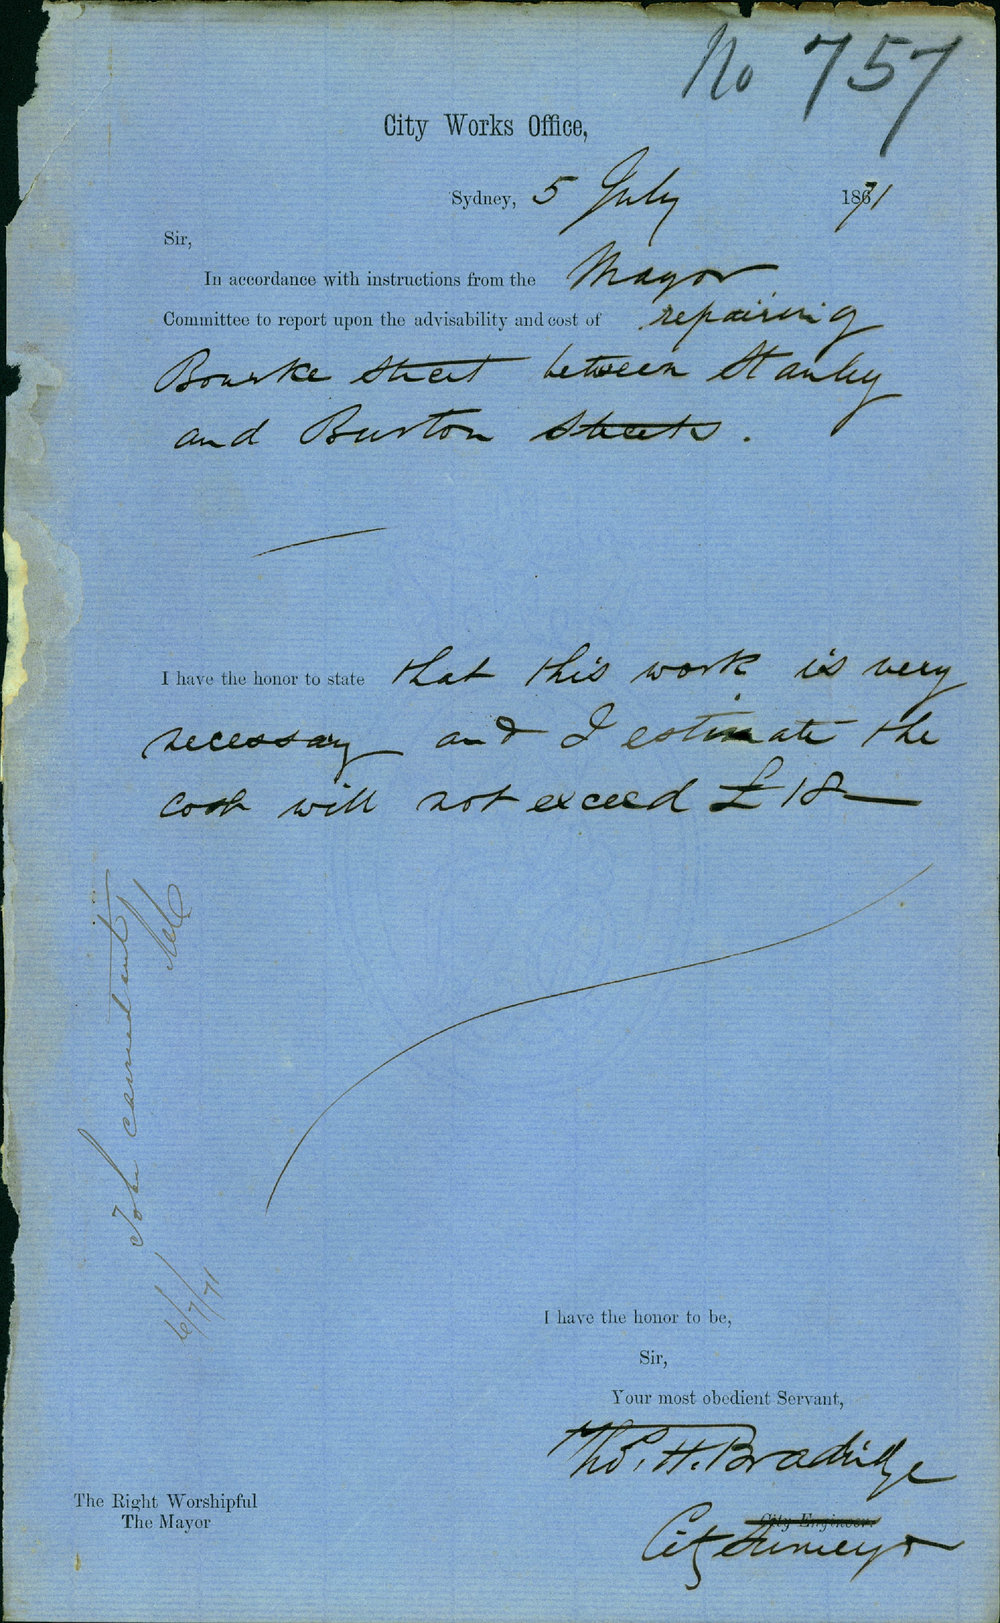 No 757
City Works Office,
Sydney, 5 July 1871
Sir,
In accordance with instructions from the Mayor
Committee to report upon the advisability and cost of repairing
Bourke Street between Stanley
and Burton Streets.
I have the honor to state that this work is very
necessary and I estimate the
cost will not exceed £18
To be carried out
6/7/71
I have the honor to be,
Sir,
Your most obedient Servant,
Thos. H. Bradridge
City Engineer.
City Surveyor
The Right Worshipful
The Mayor